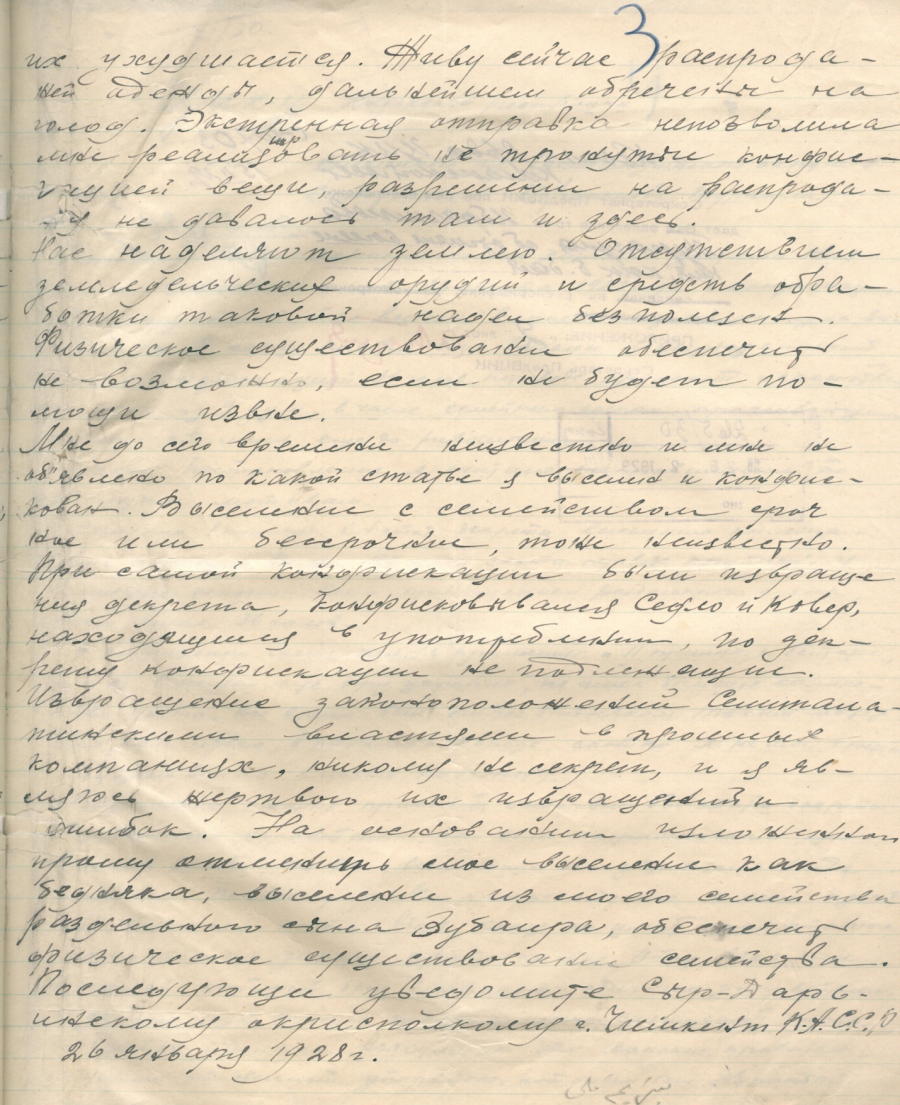 3
их ухудшается. Живу сейчас распрода-
жей одежды, дальнейшем обречены на
голод. Экстренная отправка непозволила
мне реализировать не тронутый конфис-
кацией вещи, разрешении на распрода-
жу не давалось там и здесь.
Нас наделяют землею. Отсутствием
земледельческих орудий и средств обра-
ботки таковой надел безполезен.
Физическое существовании обеспечить
не возможно, если не будет по-
мощи извне.
Мне до сего времени неизвестно и мне не
об'явлено по какой статье я выселен и конфис-
кован. Выселение с семейством сроч
ное или бессрочное, тоже неизвестно.
При самой конфискации были извраще
ния декрета, конфисковывался Седло и Ковер,
находящиися в употреблении, по дек-
рету конфискации не подлежащие.
Извращение законоположений Семипала-
тинскими властями в прошлые
компаниях, никому не секрет, и я яв-
ляюсь жертвою их извращений и
ошибок. На основании изложенного
прошу отменить мое выселение как
бедняка, выселении из моего семейства
раздельного сына Зубаира, обеспечить
физическое существовании семейства.
Последующи уведомите Сыр-Дарь-
инскому окрисполкому г. Чимкент К.А.С.С.
26 января 1928 г.